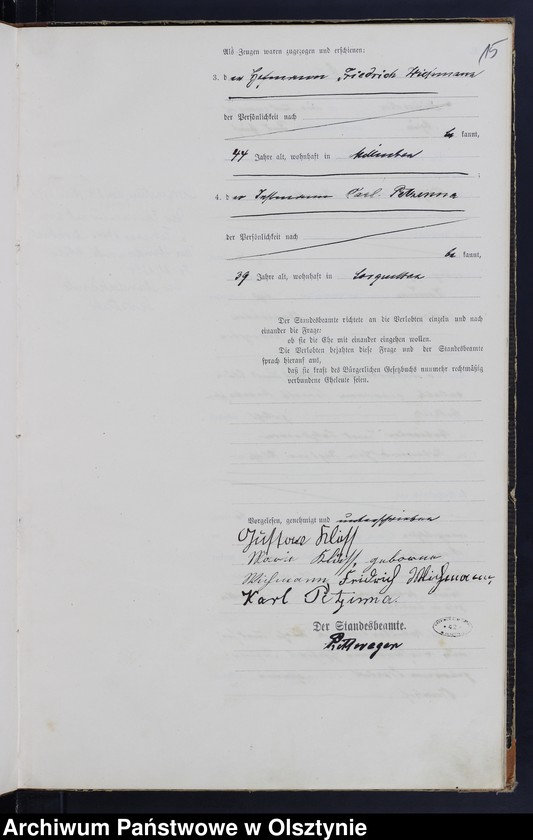 15
Als Zeugen waren zugezogen und erschienen:
3. der Friedrich Wichmann
der Persönlichkeit nach
be kannt,
44 Jahre alt, wohnhaft in
4. der Instmann Karl Petzinna
der Persönlichkeit nach
be kannt,
39 Jahre alt, wohnhaft in Sorquitten
Der Standesbeamte richtete an die Verlobten einzeln und nach
einander die Frage:
ob sie die Ehe mit einander eingehen wollen.
Die Verlobten bejahten diese Frage und der Standesbeamte
sprach hierauf aus,
daß sie kraft des Bürgerlichen Gesetzbuchs nunmehr rechtmäßig
verbundene Eheleute seien.
Vorgelesen, genehmigt und unterschrieben
Gustav Klaß
Marie Klaß, geborene
Wichmann Fridrich Wichmann,
Karl Petzinna.
Der Standesbeamte.
Archiwum Państwowe w Olsztynie